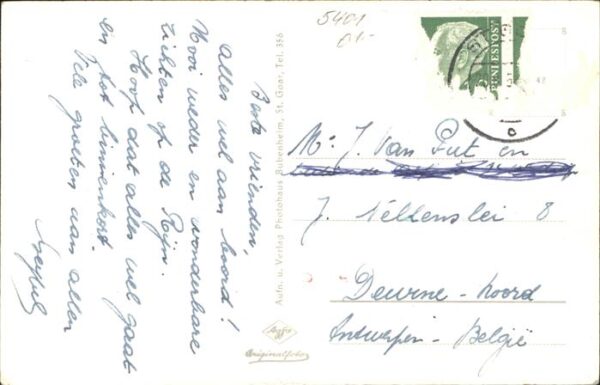 Beste vrienden,
Alles wel aan boord!
Mooi weder en wonderbare
zichten op de Rijn.
Hoop dat alles wel gaat
en tot binnenkort.
Vele groeten aan allen
Aufn. u. Verlag Photohaus Bubenheim, St. Goar, Tel. 356
Agfa
Originalfoto
5401
BUNDESPOST
Mr J. Van Put en
J. Nellenslei 8
Deurne - Noord
Antwerpen - België